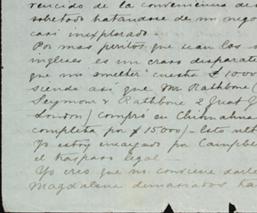 vencido de la conveniencia de
sobretodo tratandose de un nego
casi inexplorado.
Por mas peritos que sean los
ingleses es un craso disparate
que un smelter cuesta £ 1000
siendo asi que Mr Rathbone (
Seymour & Rathbone 2 Great
London) compró en Chihuahua
completa por £ 15000/-
Yo estoy encargado por Campbell
el traspaso legal
Yo creo que no conviene darle
Magdalena demasiados